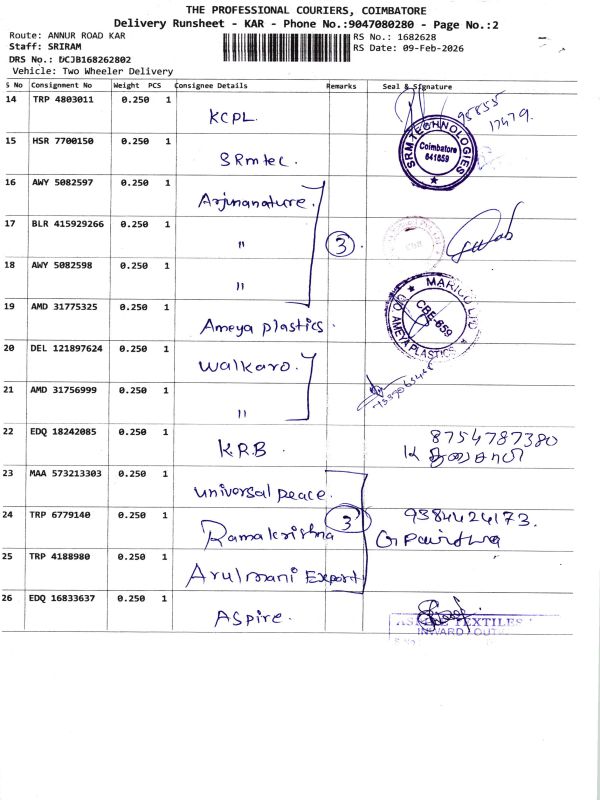 THE PROFESSIONAL COURIERS, COIMBATORE
Delivery Runsheet - KAR - Phone No.:9047080280 - Page No.:2
Route: ANNUR ROAD KAR
RS No.: 1682628
Staff: SRIRAM
RS Date: 09-Feb-2026
DRS No.: DCJB168262802
Vehicle: Two Wheeler Delivery
S No Consignment No Weight PCS Consignee Details Remarks Seal & Signature
14 TRP 4803011 0.250 1 KCPL. 95855 17479.
15 HSR 7700150 0.250 1 SRmtec. SRM TECHNOLOGIES Coimbatore 641659
16 AWY 5082597 0.250 1 Arjunanature.
17 BLR 415929266 0.250 1 " 3
18 AWY 5082598 0.250 1 "
19 AMD 31775325 0.250 1 Ameya plastics. MARICO LTD C/O AMEYA PLASTICS CBE-659
20 DEL 121897624 0.250 1 Walkaro.
21 AMD 31756999 0.250 1 "
22 EDQ 18242085 0.250 1 K.R.B. 8754787380
23 MAA 573213303 0.250 1 universal peace.
24 TRP 6779140 0.250 1 Ramakrishna 3 9384424173.
25 TRP 4188980 0.250 1 Arulmani Export
26 EDQ 16833637 0.250 1 Aspire. TEXTILES
INWARD / OUT